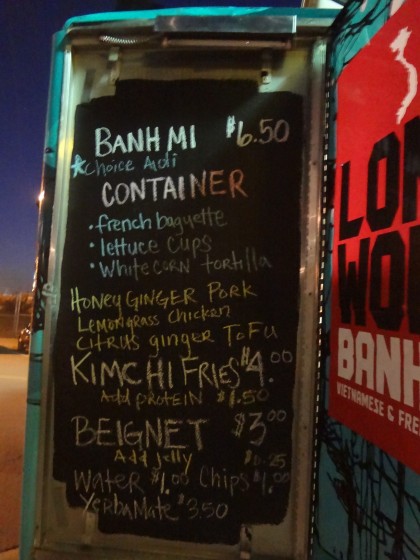 BANH MI $6.50
*Choice Audi
CONTAINER
• french baguette
• lettuce cups
• White CORN tortilla
HONEY GINGER PORK
Lemongrass Chicken
CITRUS ginger ToFu
KIMCHI FRIES $4.00
Add PROTEIN $1.50
BEIGNET $3.00
Add jelly $0.25
Water $1.00 Chips $1.00
YerbaMate $3.50
BANH
VIETNAMESE & FRE